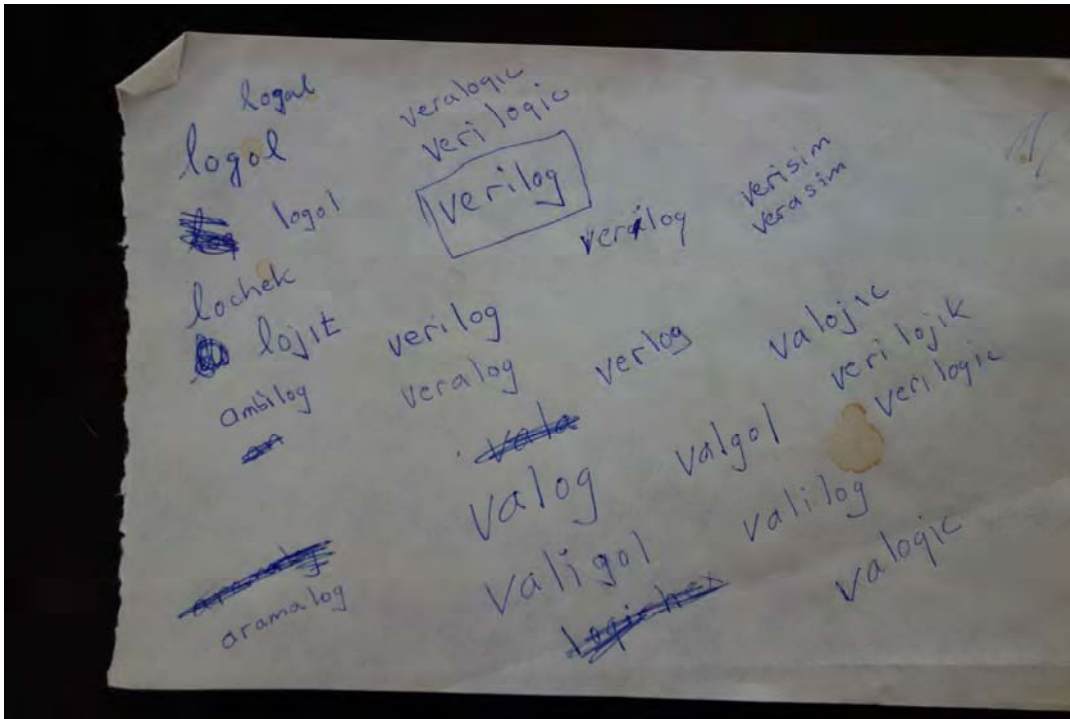 logal
logol
logol
lochek
lojit
ambilog
aramalog
veralogic
verilogic
verilog
verilog
verisim
verasim
verilog
veralog
verlog
valojic
verilojik
verilogic
vala
valog
valgol
valigol
valilog
valogic